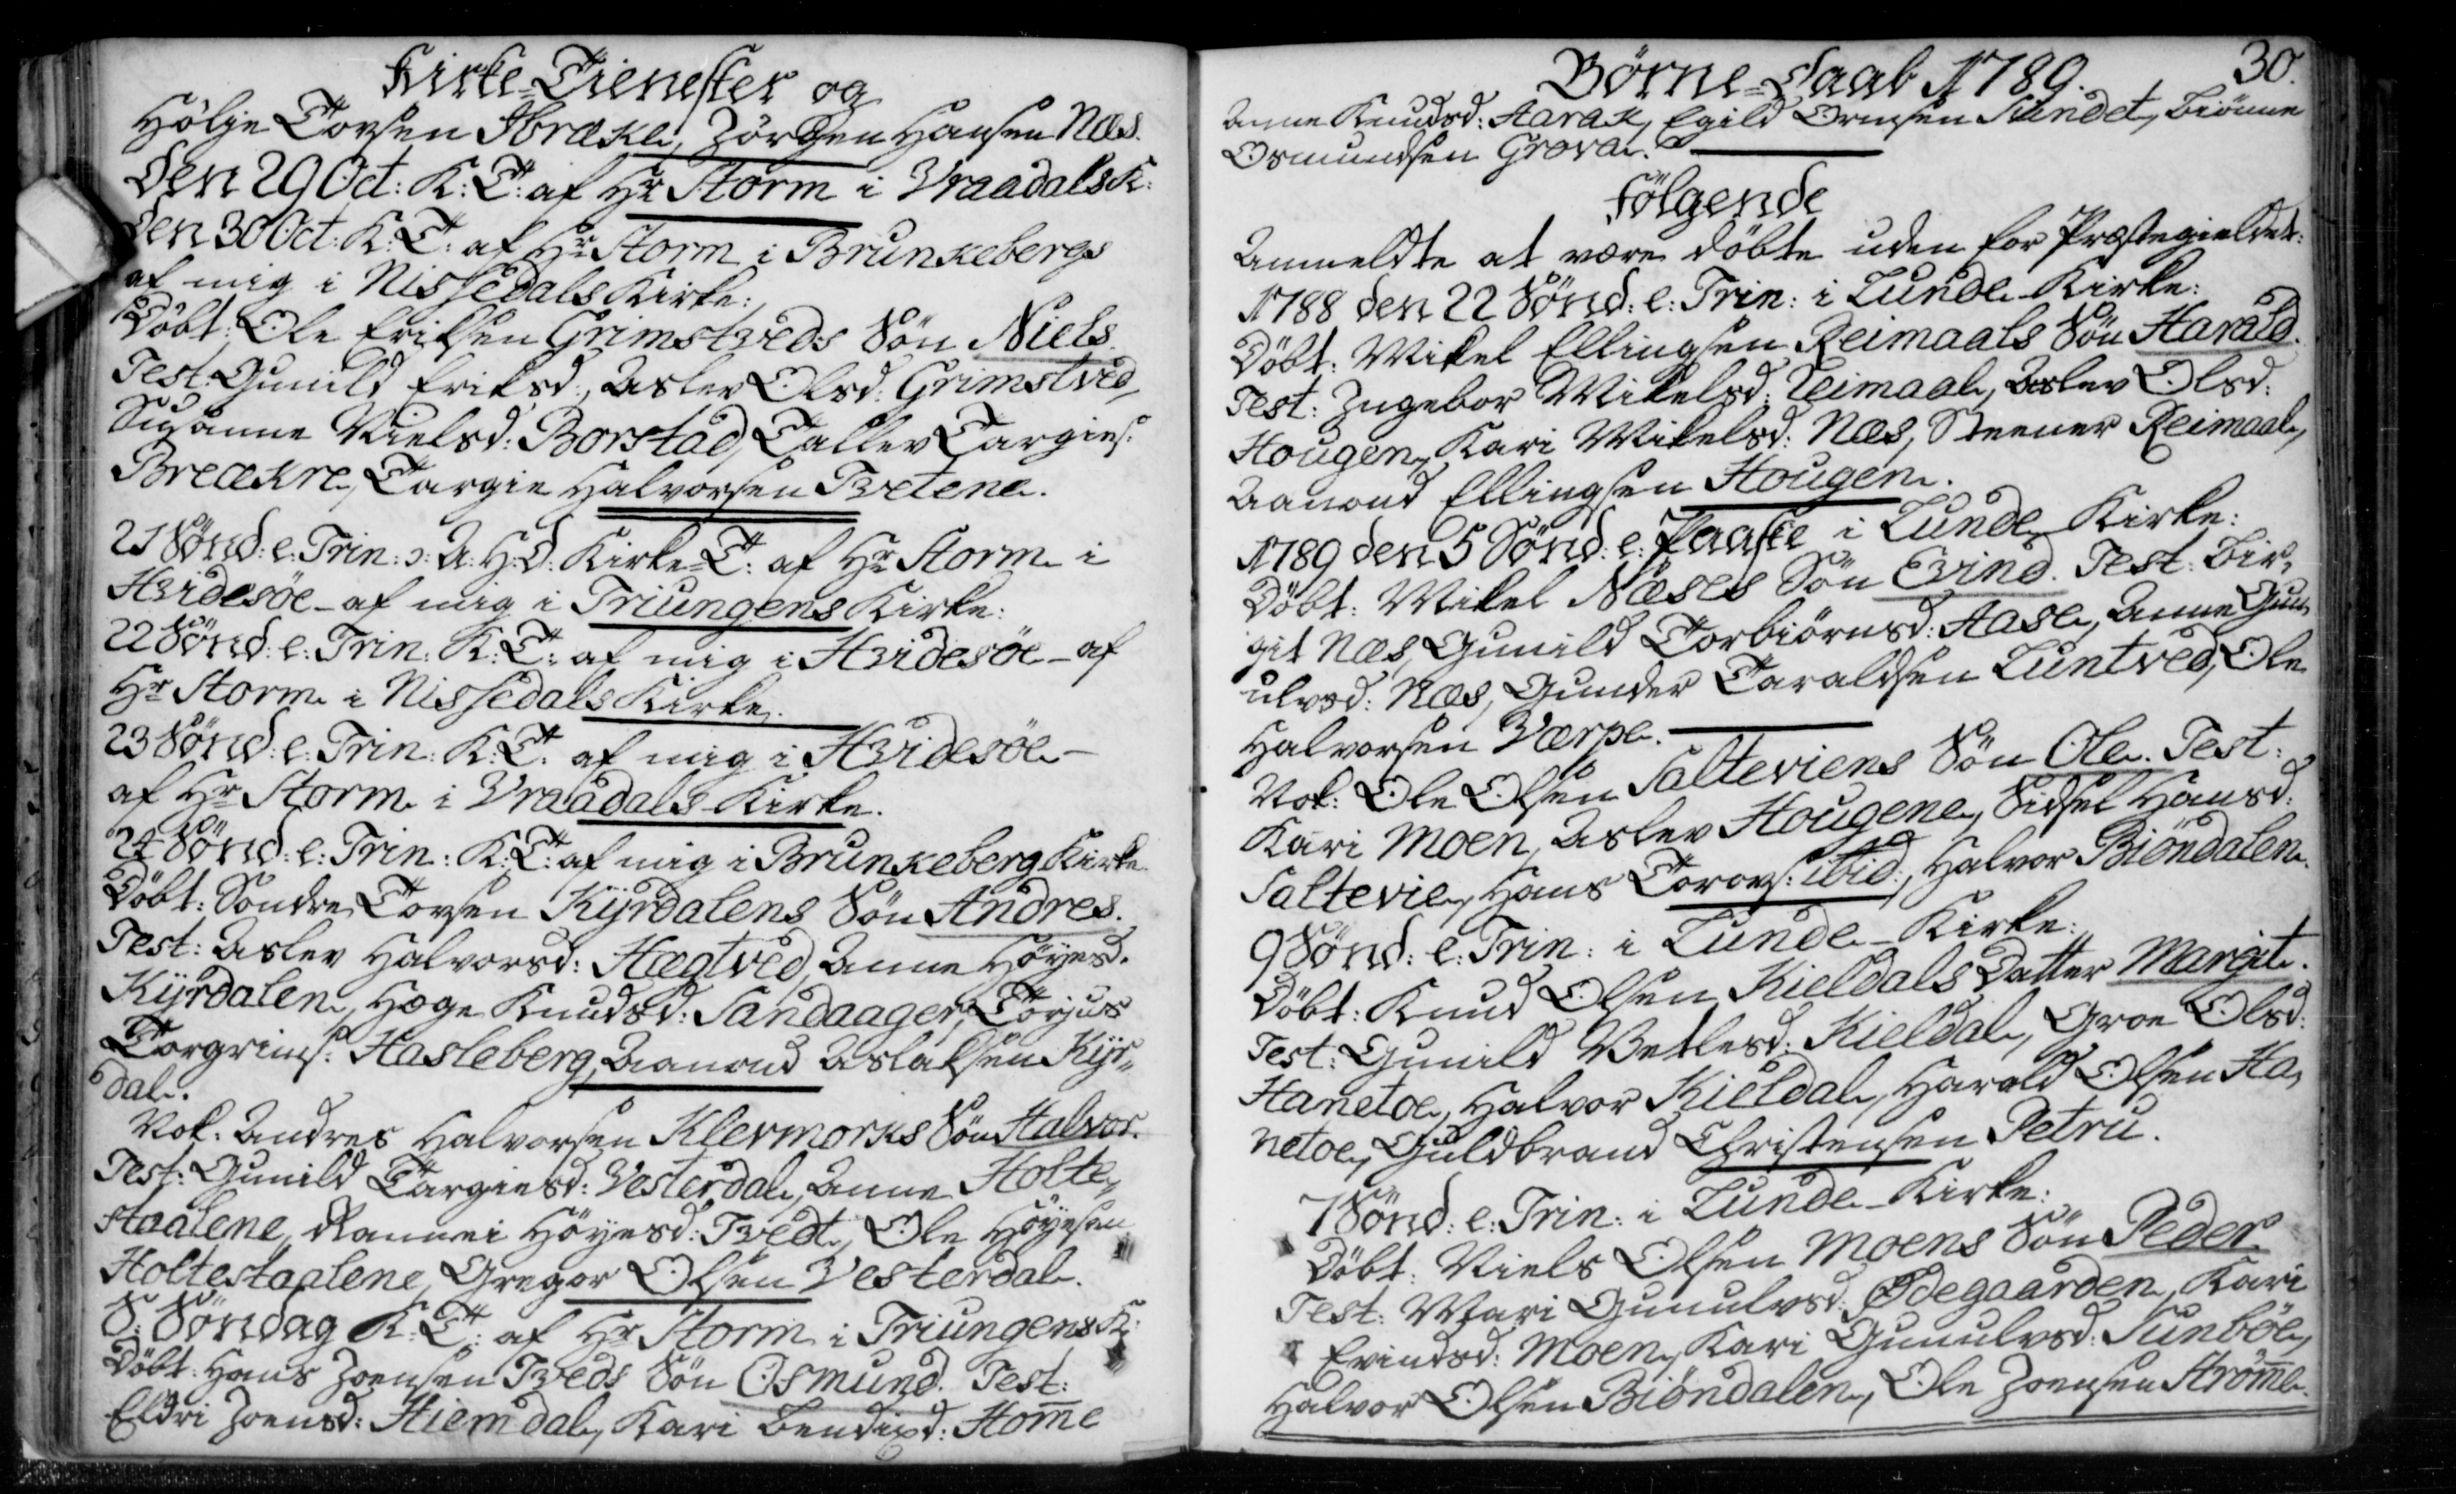 Kirke-Tienester og
Hölje Tovsen Ibrækle, Jörgen Hansen Næs.
Den 29 Oct: K: T: af Hr Storm i Vraadals K:
Den 30 Oct: K: T: af Hr Storm i Brunkebergs
af mig i Nissedals Kirke:
Döbt: Ole Eriksen Grimstveds Sön Niels.
Test: Gunild Eriksd:, Aslev Olsd: Grimstved,
Susanne Nielsd: Borstad, Tallev Targies:
Breækne, Targie Halvorsen Tvetene.
21 Sönd: e: Trin: ɔ: A: H: D: Kirke-T: af Hr Storm i
Hvidesöe - af mig i Triungens Kirke:
22 Sönd: e: Trin: K: T: af mig i Hvidesöe - af
Hr Storm i Nissedals Kirke.
23 Sönd: e: Trin: K: T: af mig i Hvidesöe -
af Hr Storm i Vraadals Kirke.
24 Sönd: e: Trin: K: T: af mig i Brunkeberg Kirke
Döbt: Sondre Tovsen Kÿrdalens Sön Andres.
Test: Aslev Halvorsd: Hægtved, Anne Höyesd.
Kÿrdalen, Hæge Knudsd: Sandaager, Torjus
Torgrims: Hasleberg, Aanond Aslaksen Kÿr-
dal.
Nok: Andres Halvorsen Klevmorks Sön Halvor.
Test: Gunild Targiesd: Vesterdal, Anne Holte,
staalene, Rannei Höyesd: Tvedt, Ole Höyesen
Holtestaalene, Gregar Olsen Vesterdal.
S: Söndag K: T: af Hr Storm i Triungens K:
Döbt: Hans Joensen Tveds Sön Osmund. Test:
Eldri Joensd: Hiemdal, Kari Bendixd: Home
Börne-Daab 1789. 30.
Anne Knudsd: Aarak, Egild Ormsen Sundet, Biönne
Osmundsen Grova.
Fölgende
Anmeldte at være döbte uden for Præstegieldet:
1788 den 22 Sönd: e: Trin: i Lunde Kirke:
Döbt: Mikel Ellingsen Reimaals Sön Harald.
Test: Ingebor Mikelsd: Reimaal, Aslev Olsd:
Hougen, Kari Mikelsd: Næs, Steener Reimaal,
Aanond Ellingsen Hougen.
1789 den 5 Sönd: e: Paaske i Lunde Kirke:
Döbt: Mikel Næses Sön Evind. Test: Bir,
git Næs, Gunild Torbiörnsd: Aase, Anne Gun,
ulvsd: Næs, Gunder Taraldsen Luntved, Ole
Halvorsen Værpe.
Nok: Ole Olsen Salteviens Sön Ole. Test:
Kari Moen, Aslev Hougene, Sidsel Hansd:
Saltevie, Hans Torovs: ibid:, Halvor Biöndalen.
9 Sönd: e: Trin: i Lunde-Kirke:
Döbt: Knud Olsen Kieldals Datter Margit.
Test: Gunild Vetlesd: Kieldal, Groe Olsd:
Hanetoe, Halvor Kieldal, Harald Olsen Ha,
netoe, Guldbrand Christensen Petru.
7 Sönd: e: Trin: i Lunde-Kirke:
Döbt: Niels Olsen Moens Sön Peder.
Test: Mari Gunulvsd: Ødegaarden, Kari
Evindsd: Moen, Kari Gunulvsd: Sunböe,
Halvor Olsen Biöndalen, Ole Joensen Strömme.